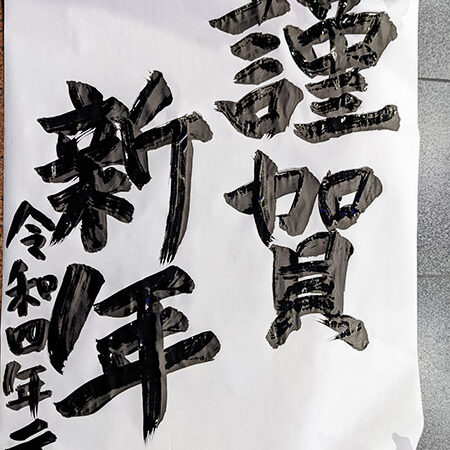 謹賀
新年
令和四年元